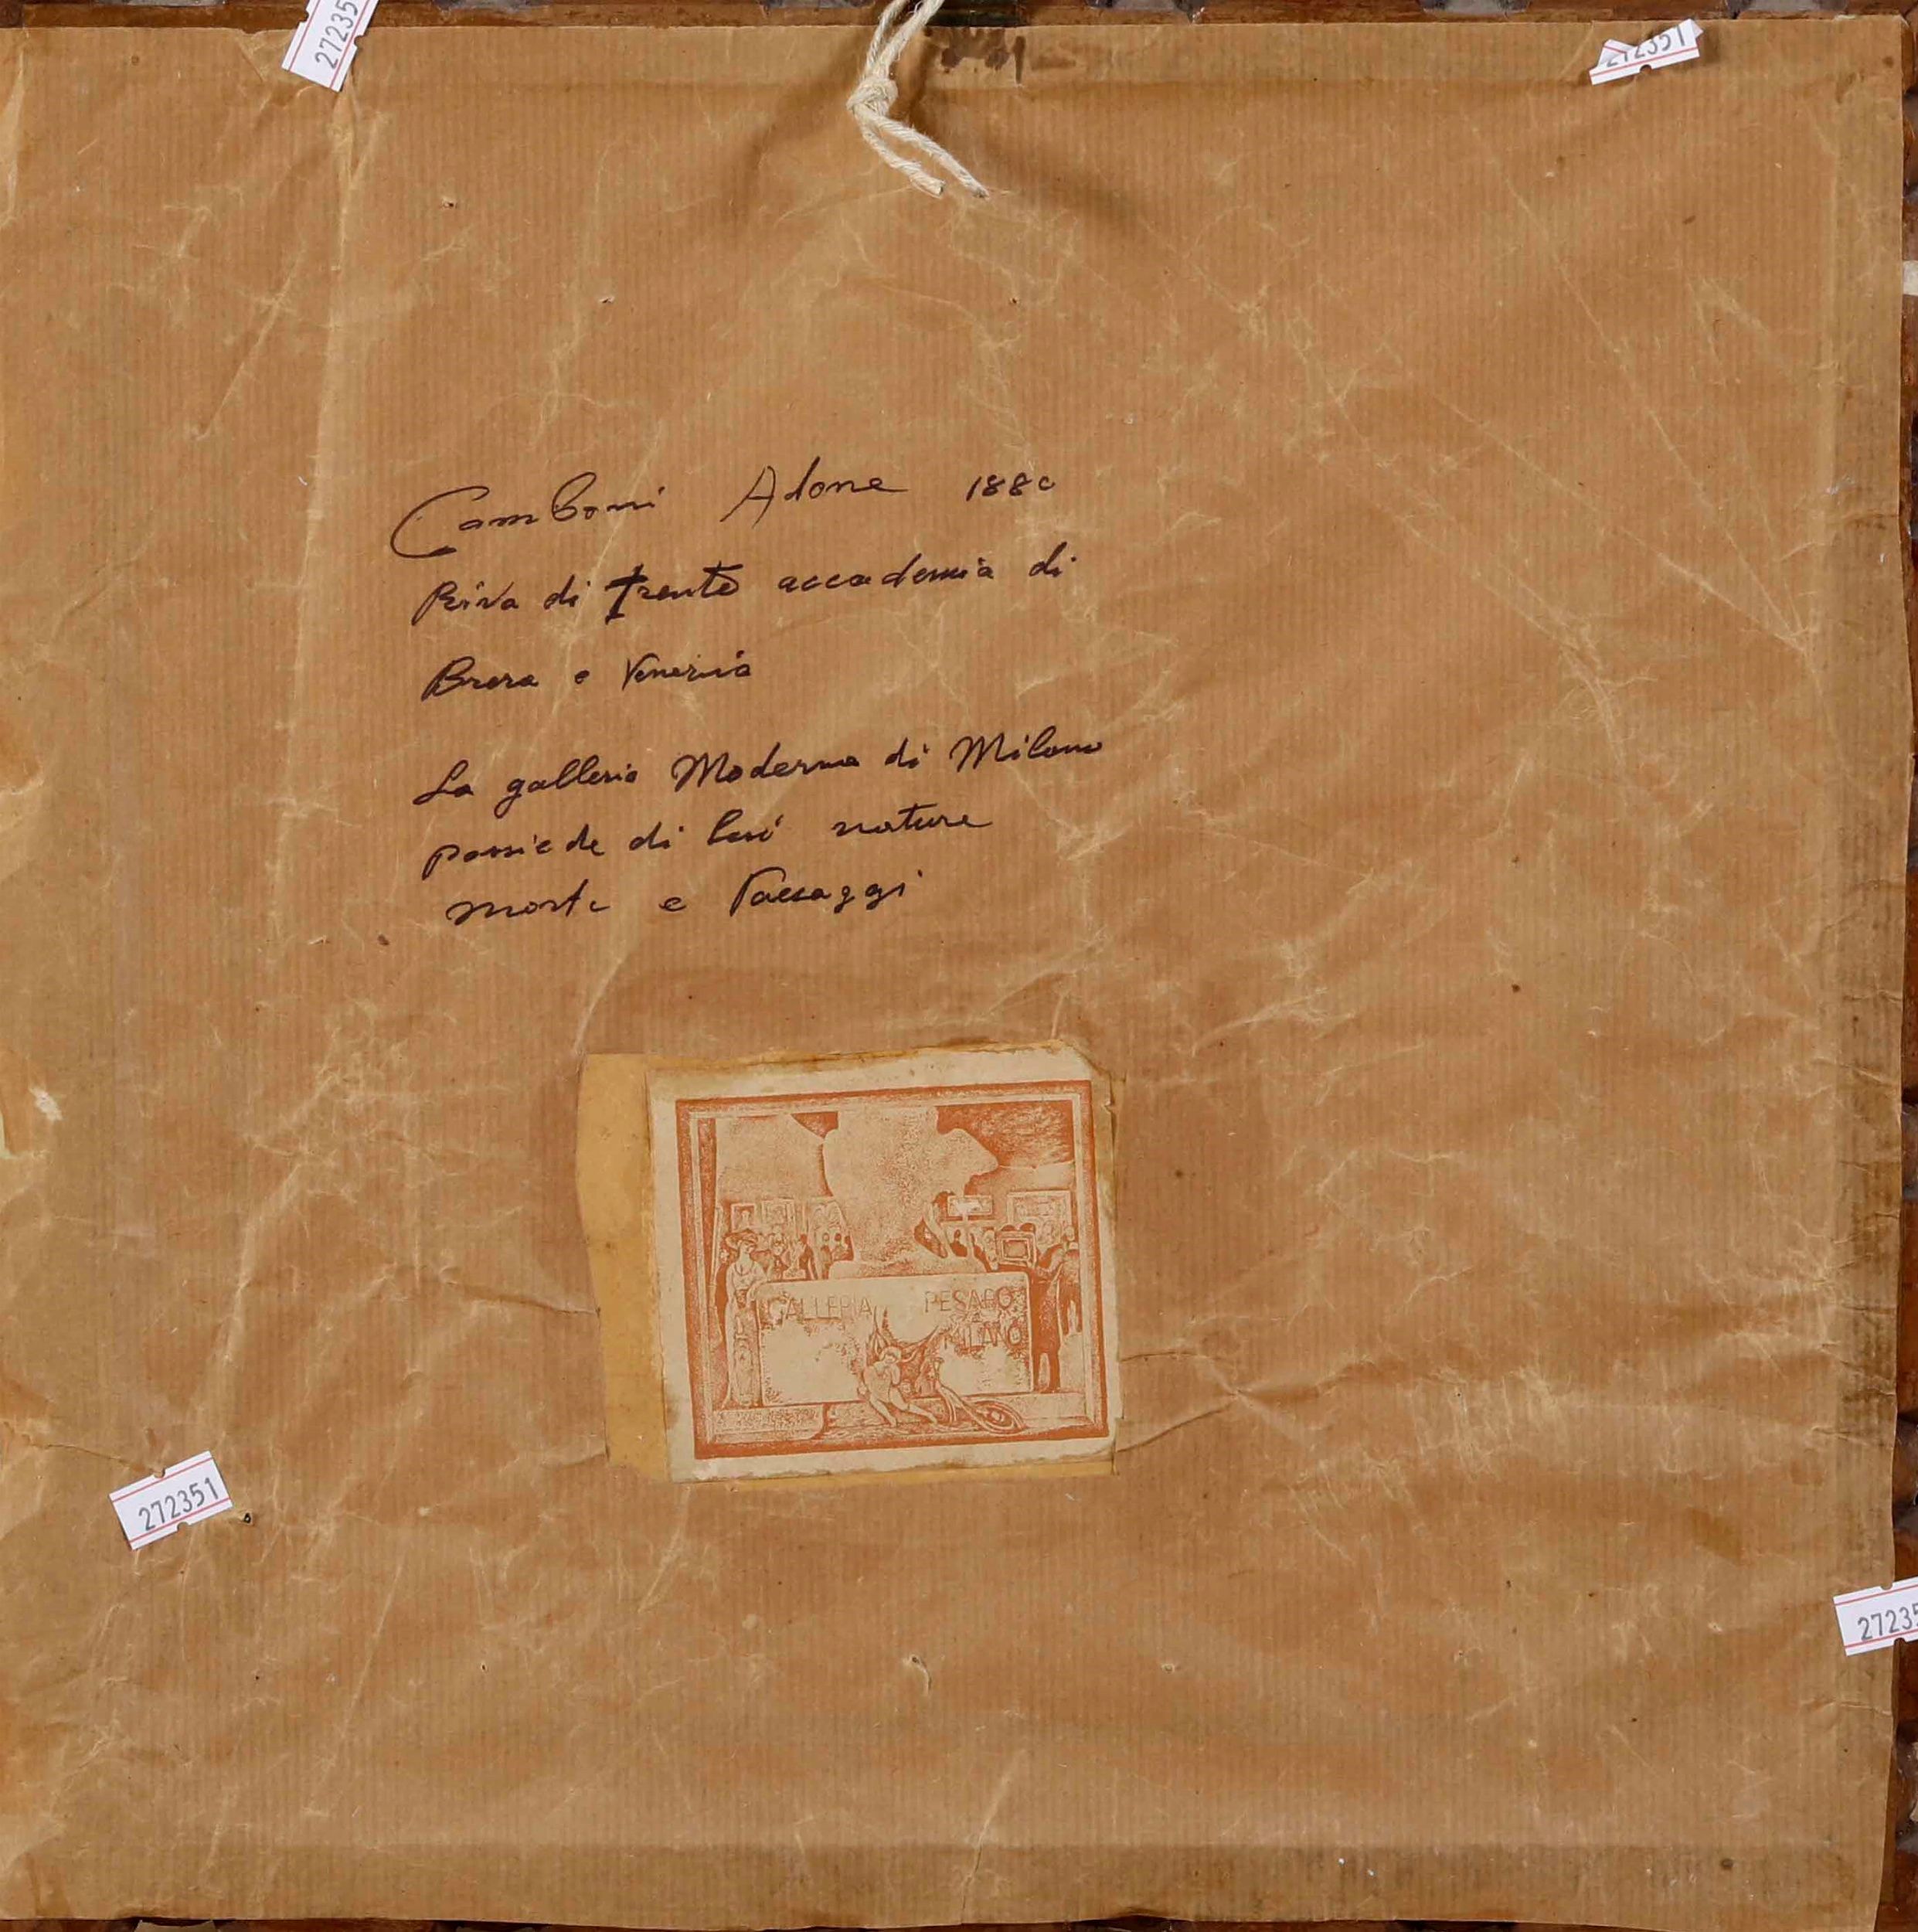 27235
272351
Camboni Adone 1880
Riva di Trento accademia di
Brera e Venezia
La galleria Moderna di Milano
possiede di lui nature
morte e Paesaggi
GALLERIA PESARO
MILANO
272351
27235